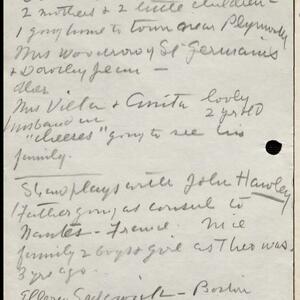 2 mothers & 2 little children -
1 going home to town near Plymouth
Mrs Woodrow St Germains
& Dorothy Jean -
Mrs & Anita lovely
2 yr old
husband in
"cheeses" going to see his
family.
plays with John Hawley
Father going as consul to
Nantes - France. Nice
family 2 boys & girl as Theo was
3 yrs ago.
- Boston